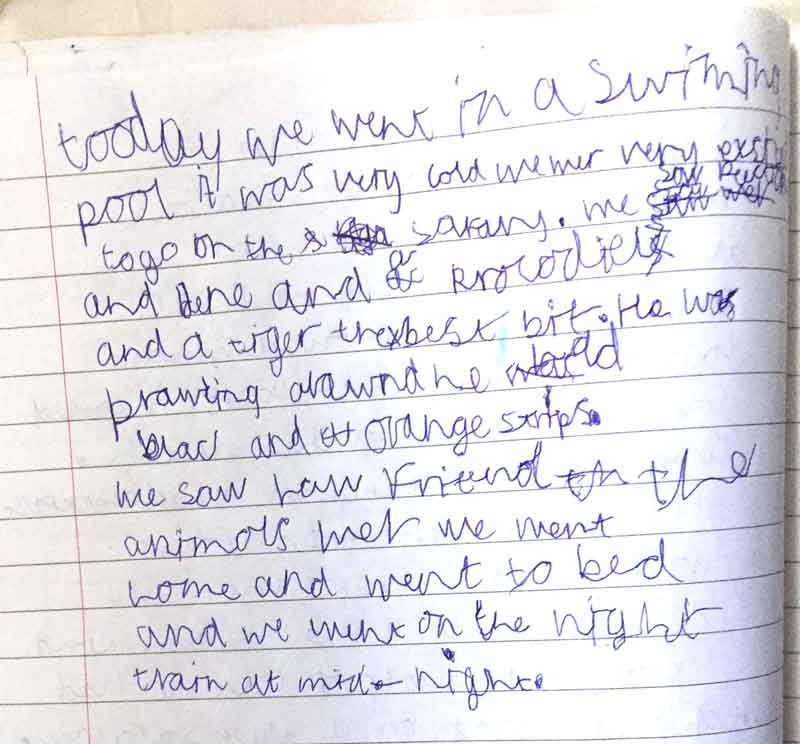 today we went in a Swiming
pool it was very cold we wer very
to go on the safary. we saw
and dene and a krocodiel
and a tiger the best bit. He was
prawling arawnd he had
blac and orange strips.
We saw haw Friend the
animals wer we went
home and went to bed
and we went on the night
train at mid-night.